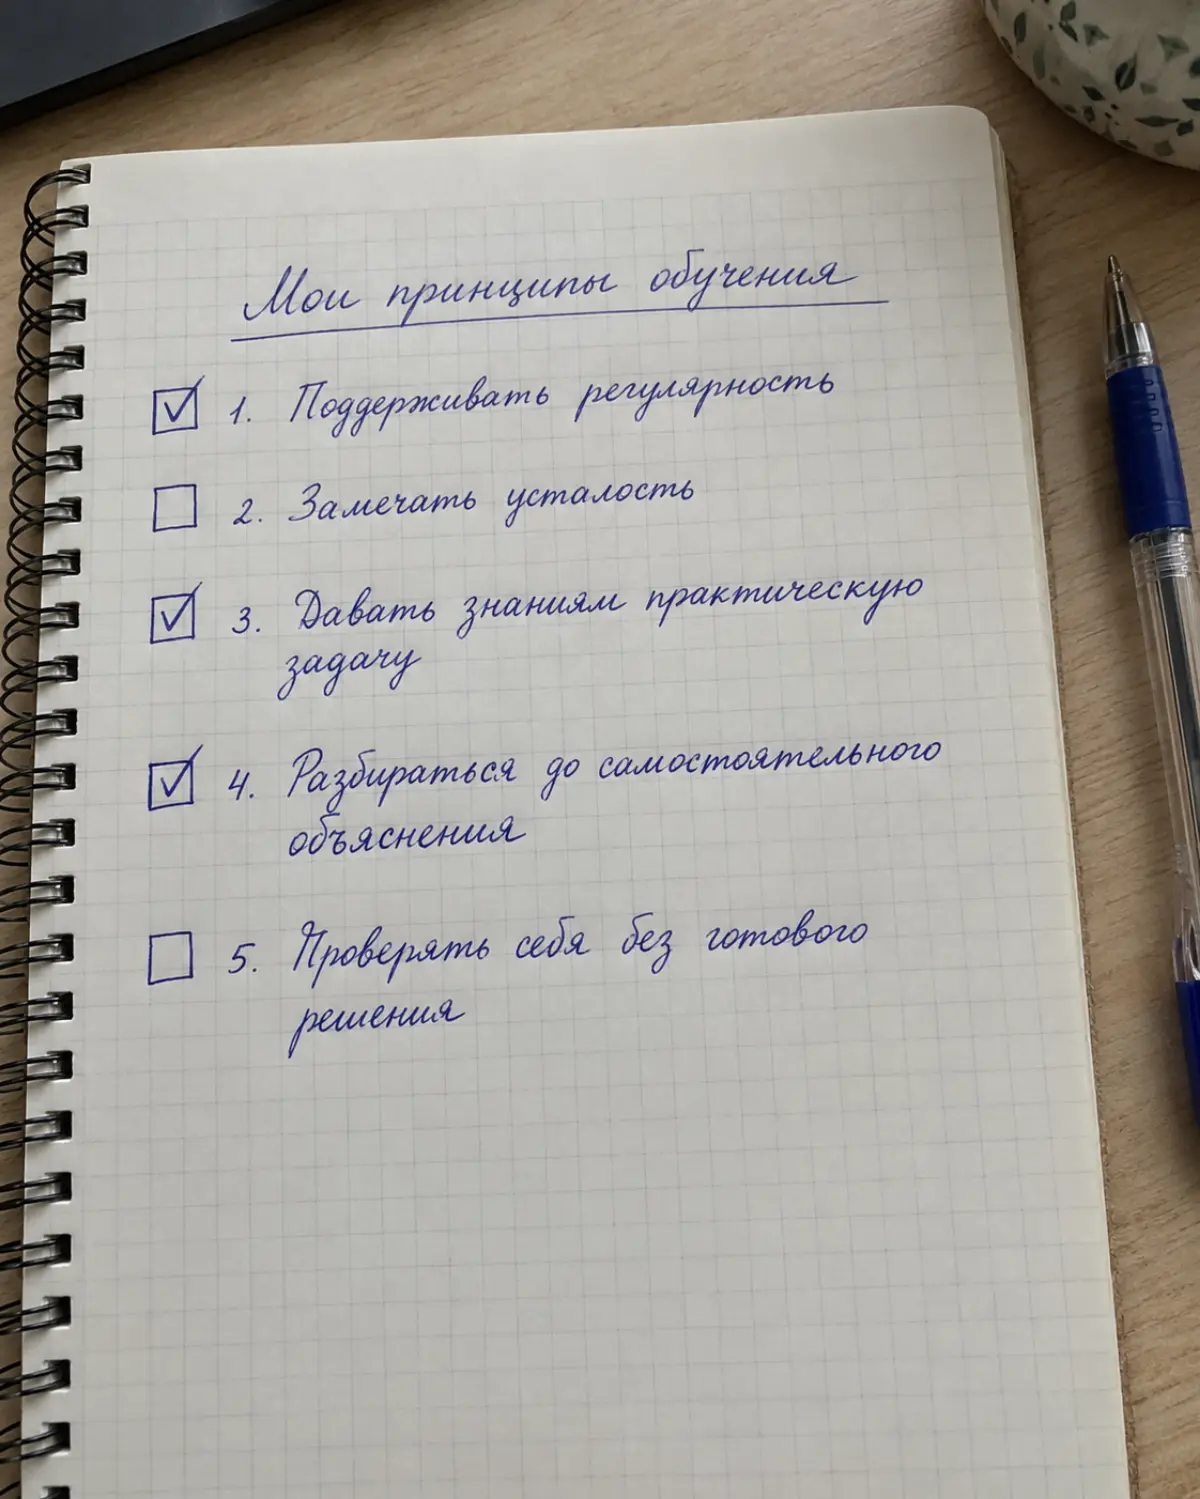 Мои принципы обучения
1. Поддерживать регулярность
2. Замечать усталость
3. Давать знаниям практическую
задачу
4. Разбираться до самостоятельного
объяснения
5. Проверять себя без готового
решения